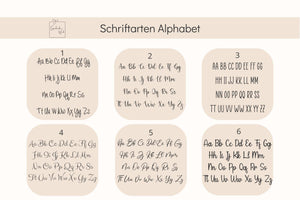 Schriftarten Alphabet
1
Aa Bb Cc Dd Ee Ff Gg
Hh Ii Jj Kk Ll Mm
Nn Oo Pp Qq Rr Ss
Tt Uu Vv Ww Xx Yy Zz
2
Aa Bb Cc Dd Ee Ff Gg
Hh Ii Jj Kk Ll Mm
Nn Oo Pp Qq Rr Ss
Tt Uu Vv Ww Xx Yy Zz
3
AA BB CC DD EE FF GG
HH II JJ KK LL MM
NN OO PP QQ RR SS
TT UU VV WW XX YY ZZ
4
Aa Bb Cc Dd Ee Ff Gg
Hh Ii Jj Kk Ll Mm
Nn Oo Pp Qq Rr Ss
Tt Uu Vv Ww Xx Yy Zz
5
Aa Bb Cc Dd Ee Ff Gg
Hh Ii Jj Kk Ll Mm
Nn Oo Pp Qq Rr Ss
Tt Uu Vv Ww Xx Yy Zz
6
Aa Bb Cc Dd Ee Ff Gg
Hh Ii Jj Kk Ll Mm
Nn Oo Pp Qq Rr Ss
Tt Uu Vv Ww Xx Yy Zz